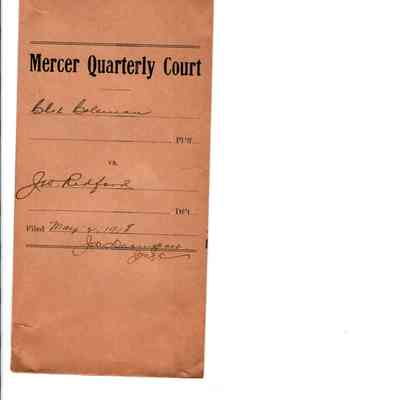 Mercer Quarterly Court
Coleman
Pl'ff.
vs.
Jno. Redford
Def't.
Filed May 2, 1918